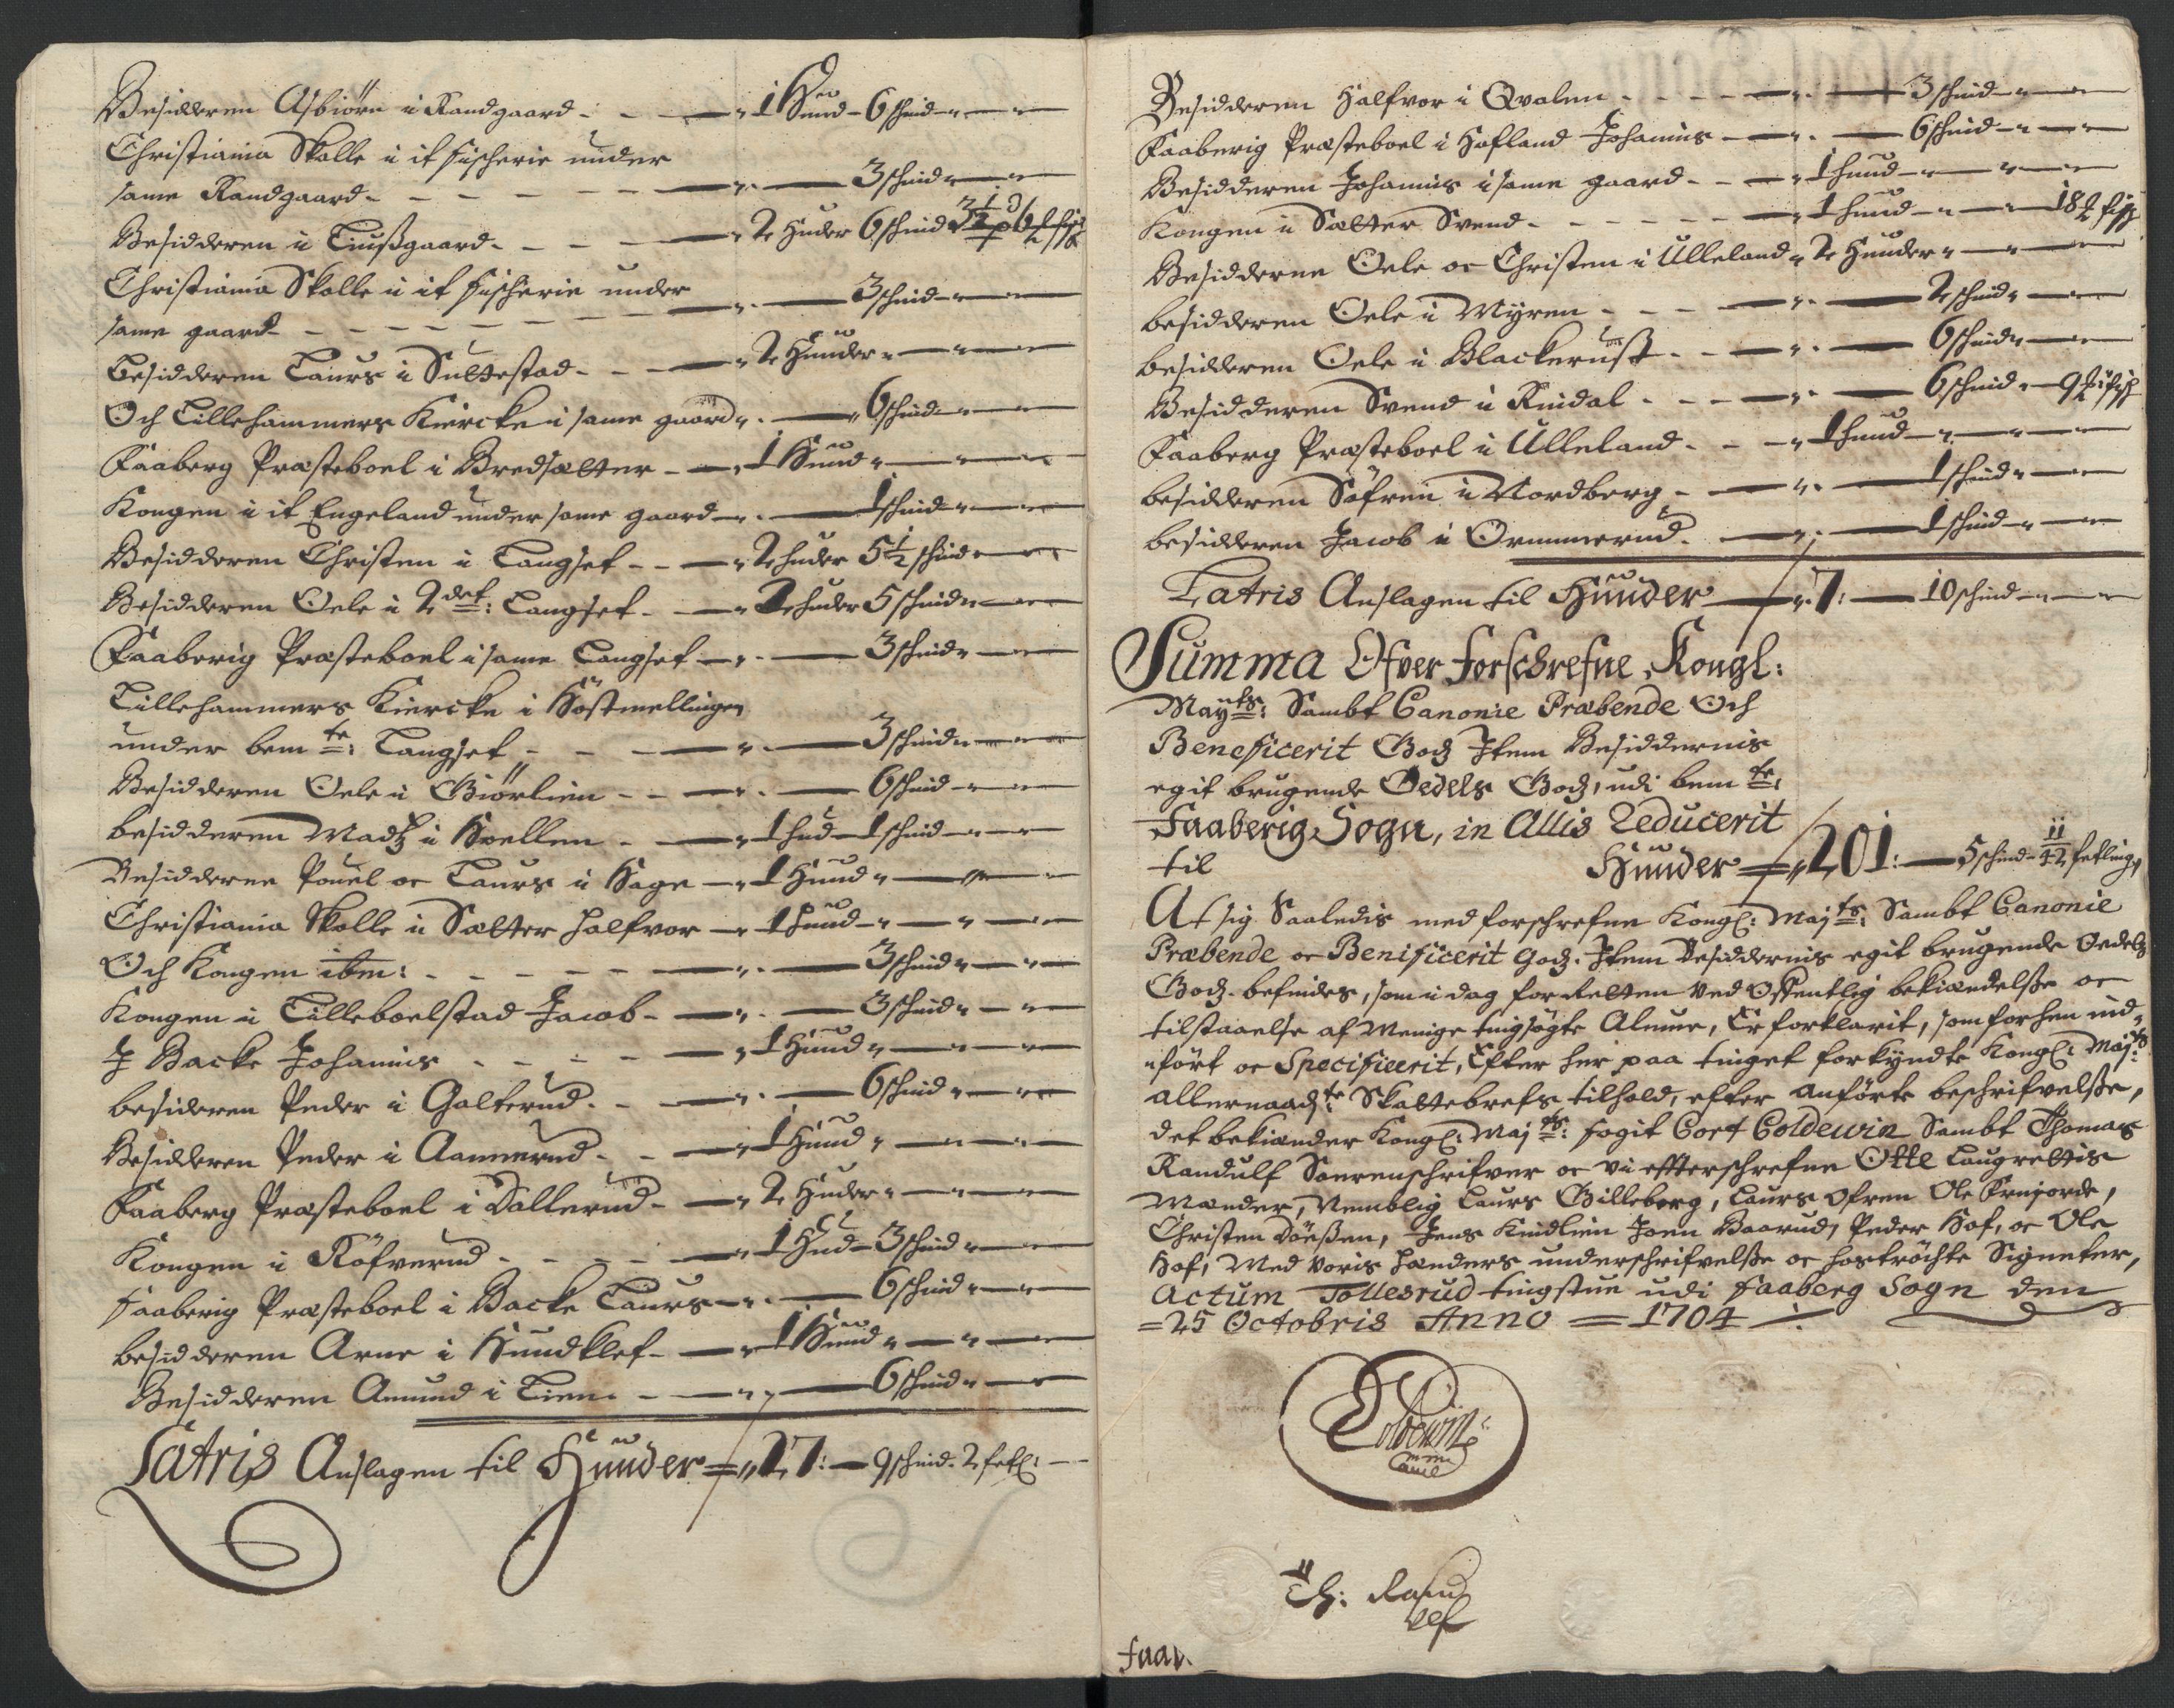 Besidderen Asbiörn i Randgaard - - 1 Hud - 6 schind
Christiania Skolle i it fischerie under
same Randgaard - - - 3 schind
Besidderen i Liusgaard - - - 2 Huder 6 schind
Christiania Skolle i it fischerie under
same gaard - - - 3 schind
Besidderen Laurs i Sultestad - - 2 Huder
Och Lillehammers Kiercke i same gaard - 6 schind
Faaberg Præsteboel i Bredsætter - 1 Hud
Kongen i it Engeland under same gaard - 1 schind
Besidderen Christen i Langset - - 2 huder 5½ schind
Besidderen Oele i 2 det: Langset - - 2 huder 5 schind
Faaberig Præsteboel i same Langset - 3 schind
Lillehammers Kiercke i Höstmellingen
under bem te: Langset - - 3 schind
Besidderen Oele i Giörlien - - 6 schind
besidderen Madz i Hvellen - 1 hud 1 schind
Besidderne Pouel oc Laurs i Hage - 1 Hud
Christiania Skolle i Sætter Halfvor - 1 hud
Och Kongen ibm: - - - 3 schind
Kongen i Lilleboelstad Jacob - 3 schind
I Backe Johannis - - - 1 Hud
besideren Peder i Galterud - - 6 schind
Besidderen Peder i Aamerud - - 1 Hud
Faaberg Præsteboel i Dallerud - 2 Huder
Kongen i Röfverud - - - 1 Hud - 3 schind
faaberig Præsteboel i Backe Laurs - 6 schind
besidderen Arne i Hundklef - 1 Hud
Besidderen Amund i Lien - - 6 schind
Latris Anslagen til Huder = 27: - 9 schind. 2 fetl:
Besidderen Halfvor i Qvalen - - - 3 schind
Faaberig Præsteboel i Hofland Johanis - 6 schind
Besidderen Johannis i same gaard - - 1 hud
Kongen i Sætter Svend - - - 1 hud - 18 ℔ fisch
Besidderne Oele oc Christen i Ulleland 2 Huder
besidderen Oele i Myren - - - 2 schind
besidderen Oele i Blackerust - - 6 schind
Besidderen Svend i Rindal - - - 6 schind - 9 ℔ fisch
Faaberg Præsteboel i Ulleland - - 1 hud
besidderen Söfren i Nordberg - 1 schind
besidderen Jacob i Orummerud - 1 schind
Latris Anslagen til Huder - 7: - 10 schind
Summa Ofver forschrefne Kongl:
May ts: Sambt Canonie Præbende Och
Beneficerit Godz Item Besiddernis
egit brugende Oedels Godz, udi bem te:
Faaberig Sogn, in Allis Reducerit
til Huder = 201: - 5 schind - 11/42 fetling
At sig Saaledis med forschrefne Kongl: Maj ts: Sambt Canonie
Præbende oc Benificerit godz. Item Besiddernis egit brugende Oedels
Godz. befindes, som i dag for Retten ved Offentlig bekiændelsse oc
tilstaaelse af Menige tingsøgte Almue, Er forklarit, som forhen ind-
ført oc Specificerit, Efter her paa tinget forkyndte Kongl: Maj ts:
allernaadz te Skattebrefs tilhold, efter anförte beschrifvelsse,
det bekiænder Kongl: Maj ts: fogit Cort Coldewin Sambt Thomas
Randulf Sorenschrifver oc vi effterschrefne Otte Laugrettis
Mænder, Nemblig Laurs Gilleberg, Laurs Ofren Ole
Christen Döeßen, Jens Kindlien Joen Baarud, Peder Hof, oc Ole
Hof, Med voris hænders underschrifvelsse oc hostrøchte Signeter,
Actum Tollesrud tingstue udi faaberg Sogn den
= 25 Octobris Anno = 1704
Coldewin
Th: Rand
ulf
faab.